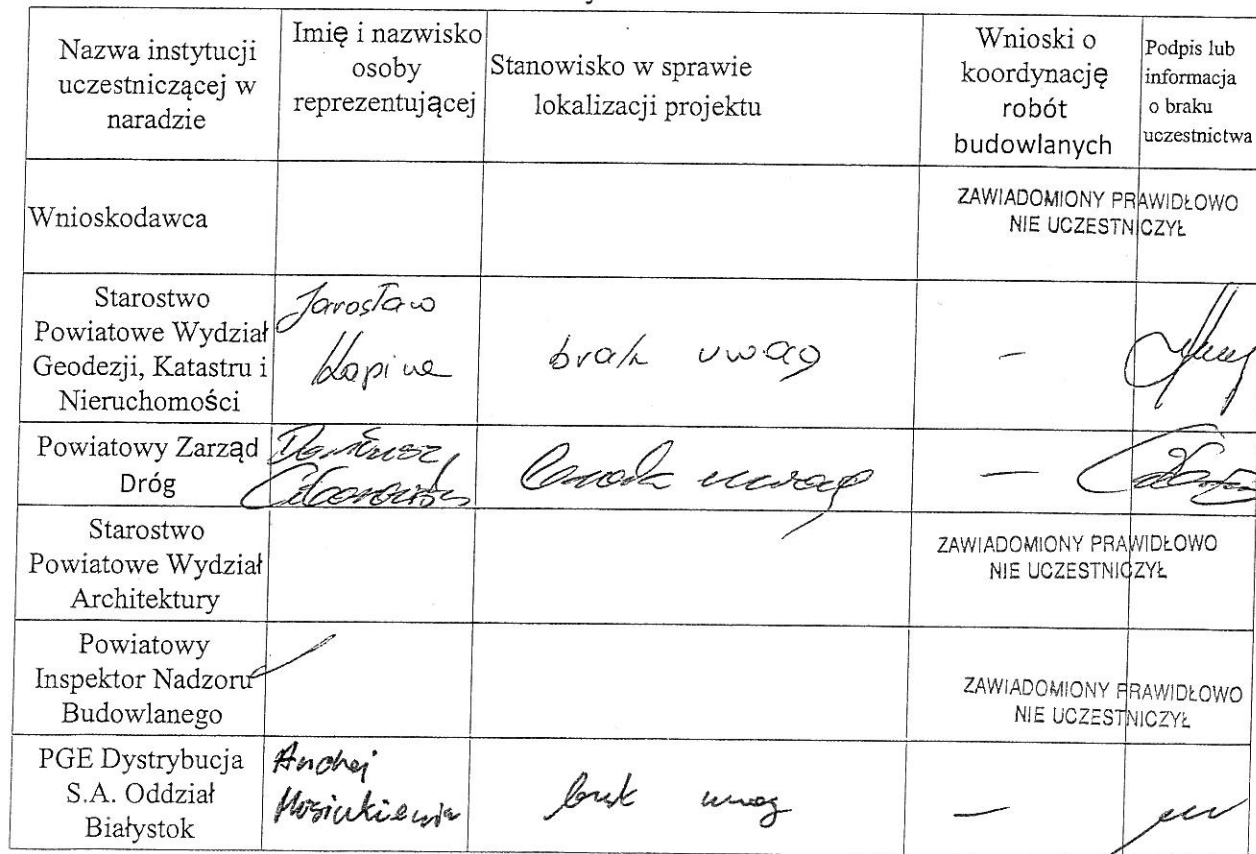 Nazwa instytucji
uczestniczącej w
naradzie
Imię i nazwisko
osoby
reprezentującej
Stanowisko w sprawie
lokalizacji projektu
Wnioski o
koordynację
robót
budowlanych
Podpis lub
informacja
o braku
uczestnictwa
Wnioskodawca
ZAWIADOMIONY PRAWIDŁOWO
NIE UCZESTNICZYŁ
Starostwo
Powiatowe Wydział
Geodezji, Katastru i
Nieruchomości
Jarosław
brak uwag
—
Powiatowy Zarząd
Dróg
Dariusz
brak uwag
—
Starostwo
Powiatowe Wydział
Architektury
ZAWIADOMIONY PRAWIDŁOWO
NIE UCZESTNICZYŁ
Powiatowy
Inspektor Nadzoru
Budowlanego
ZAWIADOMIONY PRAWIDŁOWO
NIE UCZESTNICZYŁ
PGE Dystrybucja
S.A. Oddział
Białystok
Andrzej
brak uwag
—